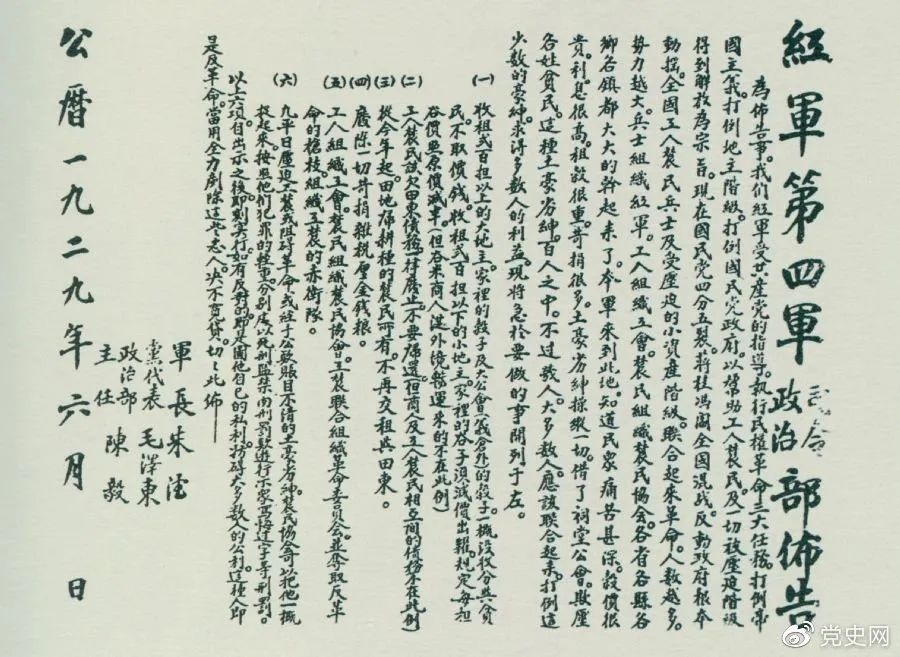 紅軍第四軍司令政治部佈告
為佈告事。我們紅軍受共產党的指導。執行民權革命三大任務。打倒帝
國主義。打倒地主階級。打倒國民党政府。以幫助工人農民。及一切被壓迫階級
得到解放為宗旨。現在國民党四分五裂。蔣桂馮閻全國混战。反動政府根本
動搖。全國工人農民兵士及受壓迫的小資產階級。聯合起來革命。人數越多。
勢力越大。兵士組織紅軍。工人組織工會。農民組織農民協会。各省各縣各
鄉各鎮都大大的幹起來了。本軍來到此地。知道民衆痛苦甚深。穀價很
貴。利息很高。租穀很重。苛捐很多。土豪劣紳操縱一切。借了祠堂公會。欺壓
各姓貧民。這種土豪劣紳。百人之中。不过数人。大多数人應該联合起來。打倒這
少数的豪紳。求得多数人的利益。現將急於要做的事開列于左。
(一)收租弍百担以上的大地主。家裡的穀子及大公會(義倉外)的穀子。一概沒收分與貧
民。不取價钱。收租弍百担以下的小地主。家裡的谷子須減價出糶。規定每担
谷價照原價減半。(但谷米商人從外境辦運来的不在此例)
(二)工人農民該欠田東債務。一律廢止。不要歸還。(但商人及工人農民相互間的債務不在此例)
(三)從今年起。田地歸耕種的農民所有。不再交租與田東。
(四)廢除一切苛捐雜稅厘金錢粮。
(五)工人組織工會。農民組織農民協會。工農联合組織革命委員会。並奪取反革
命的槍枝組織工農的赤衛隊。
(六)凡平日壓迫工農或阻碍革命。或經手公款賬目不清的土豪劣紳。農民協會可以把他一概
捉起來。按照他們犯罪的輕重。分别處以死刑監禁肉刑罰款遊行示眾写悔过字等刑罰。
以上六項自出示之後。即刻实行。如有反對的。即是圖他自己的私利。妨碍大多数人的公利。這種人即
是反革命。當用全力剷除這些惡人。决不寬貸。切切此佈——
軍長朱德
黨代表毛澤東
政治部主任陳毅
公曆一九二九年六月 日
党史网